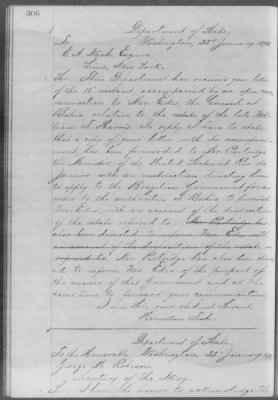 306
Department of State,
To, Washington, 22d January 1873
E. A. Nash Esquire,
Lima, New York.
Sir: This Department has received your letter
of the 15 instant, accompanied by an open com-
munication to Mr. Edes, the Consul at
Bahia, relative to the estate of the late
In reply I have to state
that a copy of your letter with its accompani-
ment, has been forwarded to Mr. Partridge
the Minister of the United States at Rio de
Janeiro with an instruction directing him
to apply to the Brazilian Government for an
order to the authorities at Bahia to furnish
Mr. Edes with an account of the disposition
of the estate referred to
also been directed to inform Mr.
an account of the disposition of the estate
Mr. Partridge has also been direct-
ed to inform Mr. Edes of the purport of
the answer of that Government and at the
same time to forward your communication
I am, Sir, your obedient servant
Hamilton Fish.
Department of State,
To the Honorable Washington 22d January
George M. Robeson
Secretary of the Navy.
Sir: I have the honor to acknowledge the